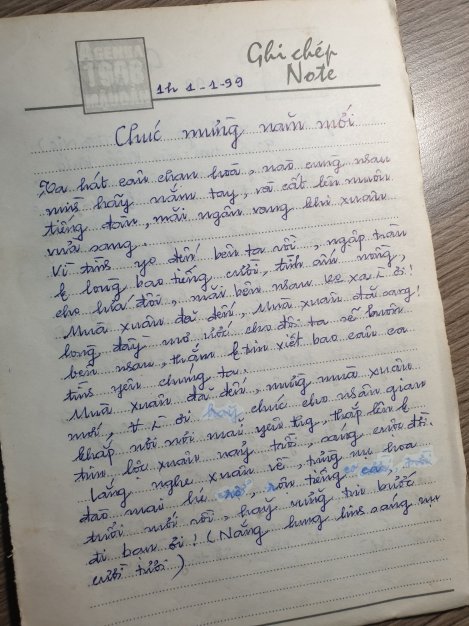 AGENDA
1998
Ghi chép
Note
1h 1-1-99
Chúc mừng năm mới
Ta hát cân chan hoà, nào cùng nhau
mình hãy nắm tay, và cất lên muôn
tiếng đàn, mãi ngân vang khi xuân
vừa sang.
Vì tình yo đến bên ta rồi, ngập tràn
lòng bao tiếng cười, tình ấm nồng,
cho lứa đôi, mãi bên nhau ko xa ơi!
Mùa xuân đã đến, Mùa xuân đã sang!
lòng đầy mơ ước cho đôi ta sẽ luôn
bên nhau, thắm viết bao câu ca
tình yêu chúng ta.
Mùa xuân đã đến, mừng mùa xuân
mới, ơi hãy chúc cho nhân gian
khắp nơi nơi mãi yên, thắp lên
tim lộc xuân nảy trồi, sáng cuộc đời.
Lắng nghe xuân về, từng nụ hoa
đào mai hé nở, rộn tiếng
tuổi mới rồi, hãy vững tin bước
đi bạn ơi! (Nắng lung linh sáng nụ
cười tươi)